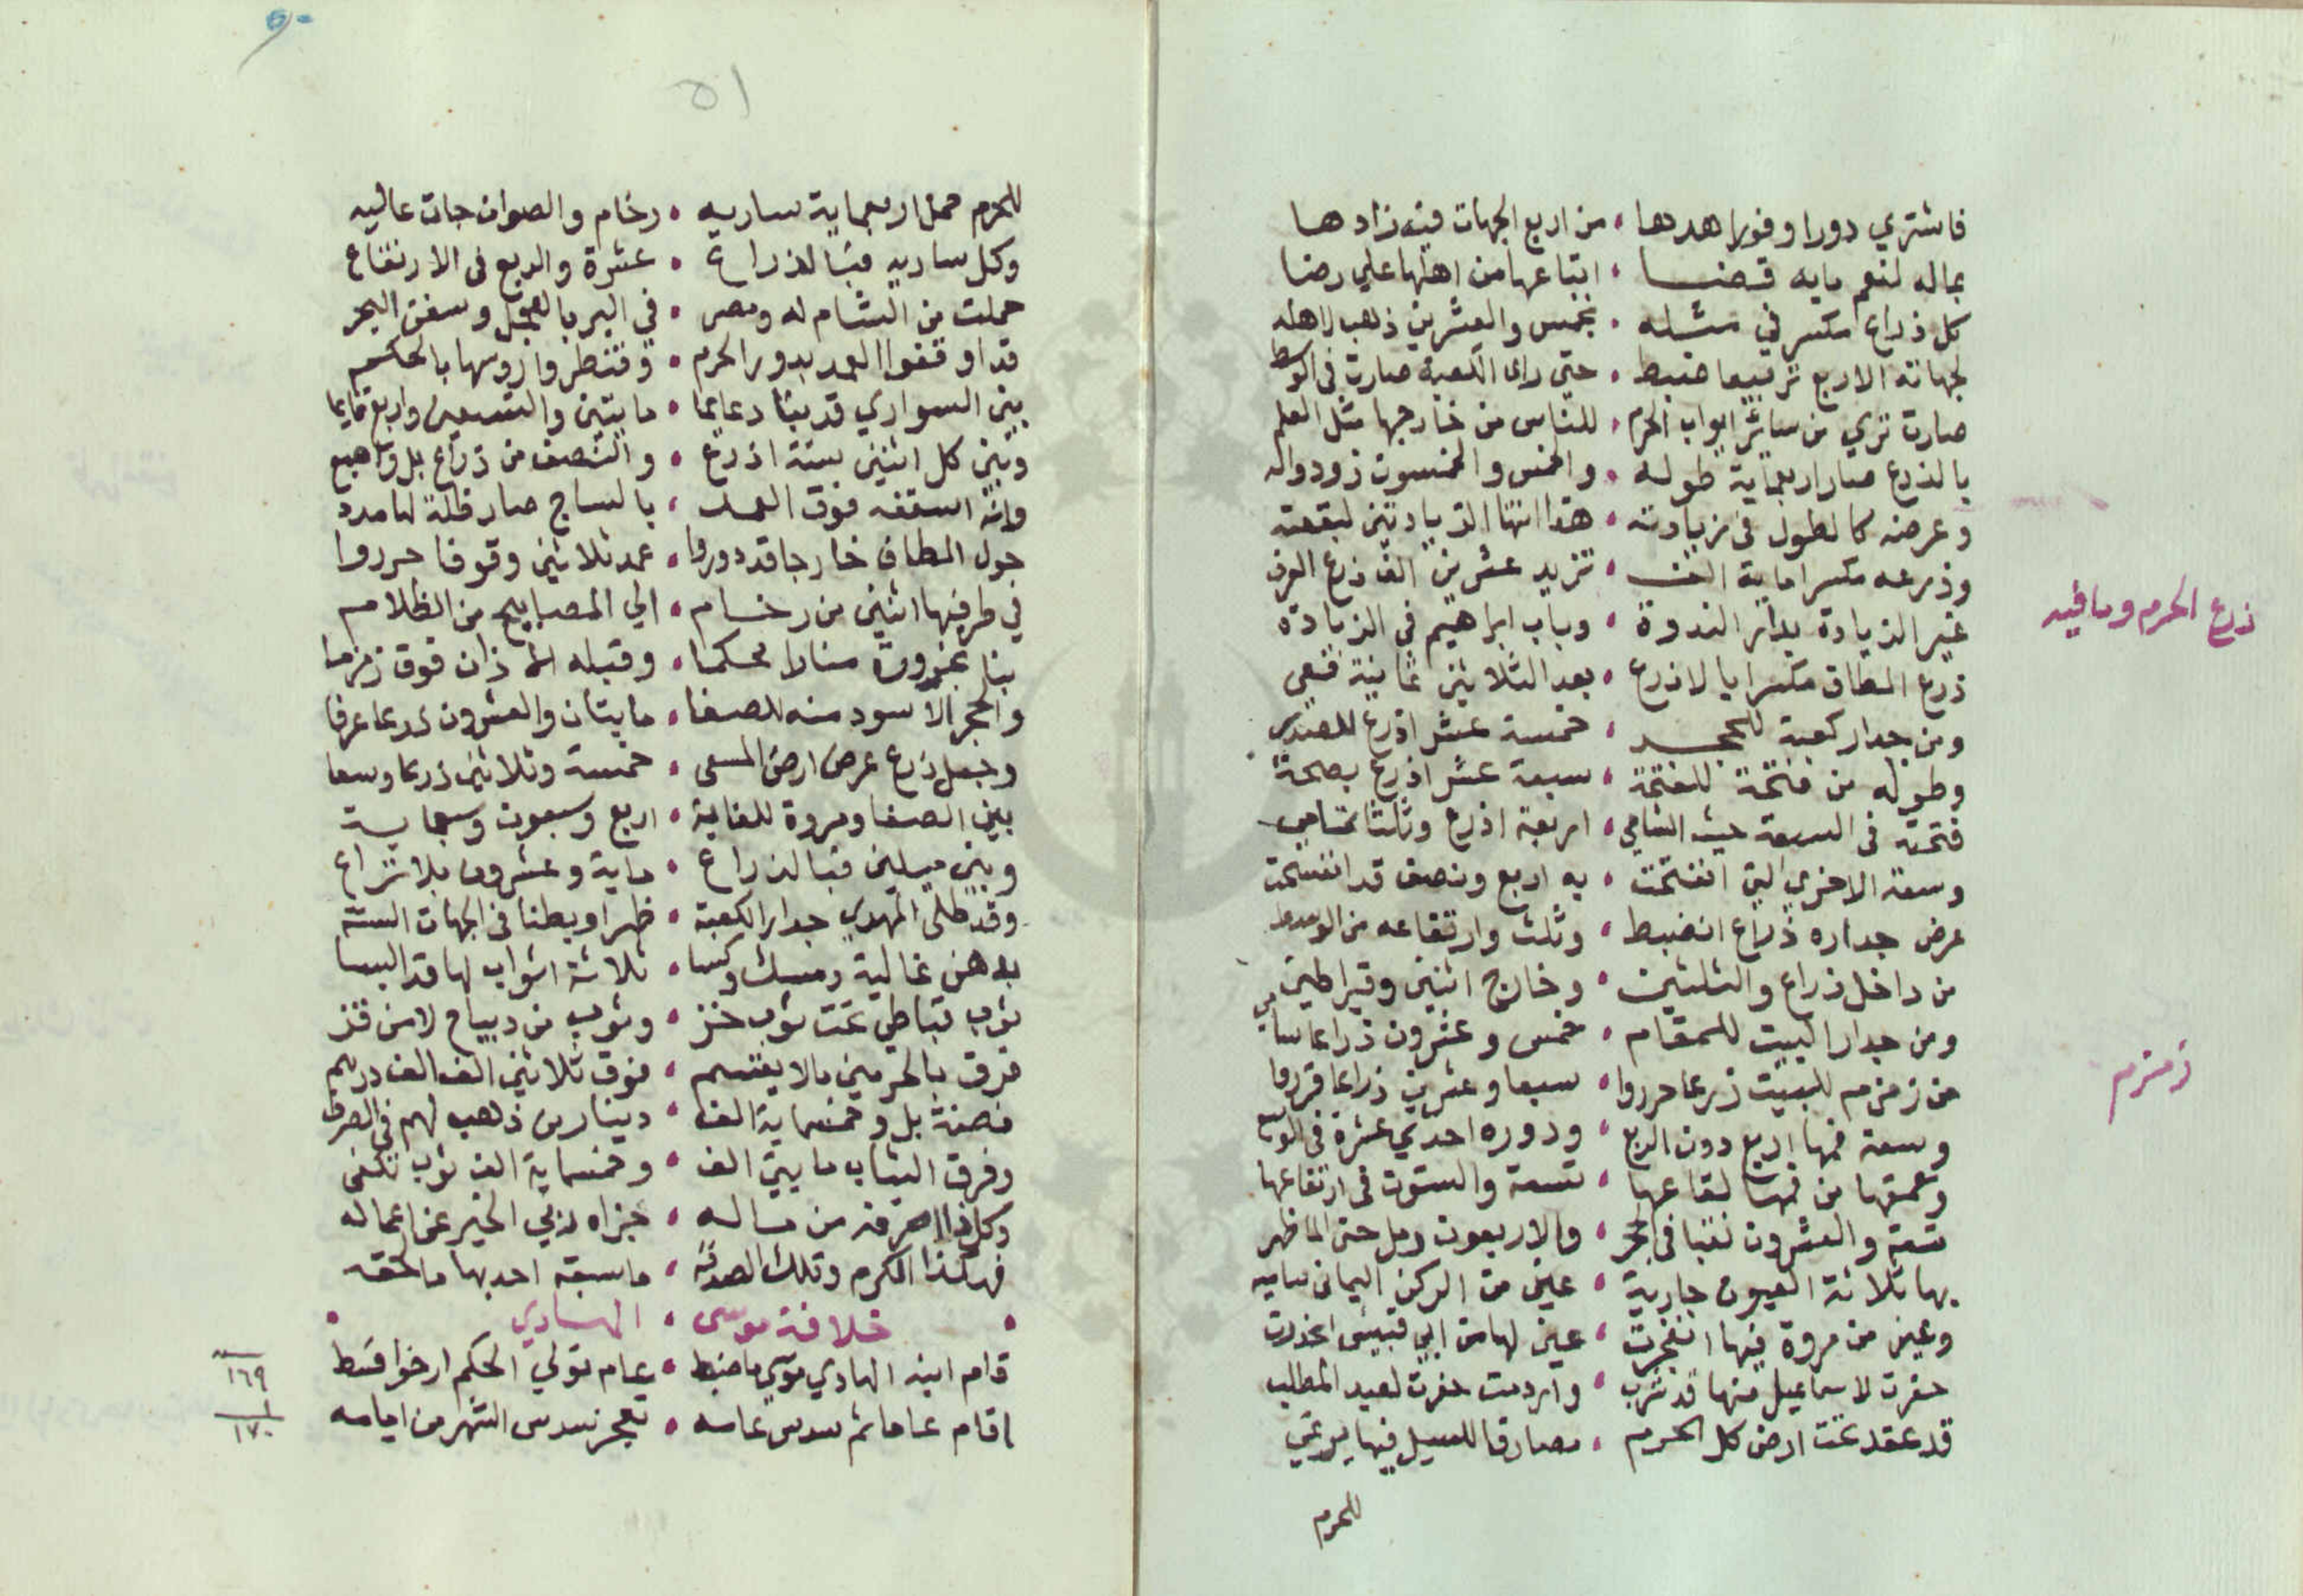 فاشتري دورا وفورا هدها • من اربع الجهات فيه زادها
بماله لنعم مايه قضا • ابتاعها من اهلها علي رضا
كل ذراع مكسر في مثله • بخمس والعشرين ذهب لاهله
لجهاته الاربع تربيعا ضبط • حتي راي الكعبة صارت في الوسط
صارت تري من سائر ابواب الحرم • للناس من خارجها مثل العلم
بالذرع صار اربعماية طوله • والخمس والخمسون
وعرضه كالطول في زيادته • هذا انتها الزيادتين لبقعته
وذرعه مكسرا ماية الف • تزيد عشرين الف ذرع
غير الزيادة بدار الندوة • وباب ابراهيم في الزيادة
ذرع الحرم وما فيه
ذرع المطاف مكسرا بالاذرع • بعد الثلاثين ثمانية فعي
ومن جدار كعبة للحجر • خمسة عشر اذرع
وطوله من فتحة للفتحة • سبعة عشر اذرع بصحة
فتحته في السعة حيث الشامي • اربعة اذرع وثلثا
وسعة الاخري التي انفتحت • به اربع ونصف قد انفسحت
عرض جداره ذراع انضبط • وثلث وارتفاعه من الوسط
من داخل ذراع والثلثين • وخارج اثنين وقيراطين
ومن جدار البيت للمقام • خمس وعشرون ذراعا سامي
زمزم
من زمزم للبيت ذرعا حرروا • سبعا وعشرين ذراعا قرروا
وسعة فمها اربع دون الربع • ودوره احدي عشرة في الوسع
وعمقها من فمها لقاعها • تسعة والستون في ارتفاعها
تسعة والعشرون نقبا في الحجر • والاربعون
بها ثلاثة العيون جارية • عين من الركن اليماني ساميه
وعين من مروة فيها انفجرت • عين لها من ابي قبيس انحدرت
حفرت لاسماعيل منها قد شرب • واردمت حفرت لعبد المطلب
قد عقد تحت ارض كل الحرم • مصارفا للسيل فيها يرتمي
للحرم
٥١
للحرم حمل اربعماية ساريه • رخام والصوان جات عاليه
وكل ساريه فبالذراع • عشرة والربع في الارتفاع
حملت من الشام له ومصر • في البر بالعجل وسفن البحر
قد اوقفوا العمد بدور الحرم • وقنطروا روسها بالحكم
بين السواري قد بنا دعايما • مايتين والتسعين واربع قايما
وبين كل اثنين ستة اذرع • والنصف من ذراع
وانه اسقفه فوق العمد • بالساج صار ظلة لها مدد
حول المطاف خارجا قد دوروا • عمد ثلاثين وقوفا حرروا
في طرفيها اثنين من رخام • الي المصابيح من الظلام
بنا منارا محكما • وقبله الاذان فوق زمزما
والحجر الاسود منه للصفا • مايتان والعشرون ذرعا عرفا
وجعل ذرع عرض ارض المسعى • خمسة وثلاثين ذرعا وسعا
بين الصفا ومروة للغاية • اربع وسبعون وسبعماية
وبين ميلين فبالذراع • ماية وعشرون بلا نزاع
وقد طلى المهدي جدار الكعبة • ظهرا وبطنا في الجهات الستة
بدهن غالية ومسك وكسا • ثلاثة اثواب لها قد البسا
ثوب قباطي تحت ثوب خز • وثوب من ديباج لا من قز
فرق بالحرمين مالا يقتسم • فوق ثلاثين الف الف درهم
فضة بل وخمسماية الف • دينار من ذهب لهم في الصرف
وفرق الثياب مايتي الف • وخمسماية الف ثوب تكفي
وكل ذا صرفه من ماله • جزاه ربي الخير عن اعماله
فهكذا الكرم وتلك الصدقه • ما سبقه احد بها ما لحقه
• خلافة موسى • الهادي •
قام ابنه الهادي موسي ما ضبط • بعام تولي الحكم ارخوا فقط
١٦٩
اقام عاما ثم سدس عامه • بعجز سدس الشهر من ايامه
١
١٧٠